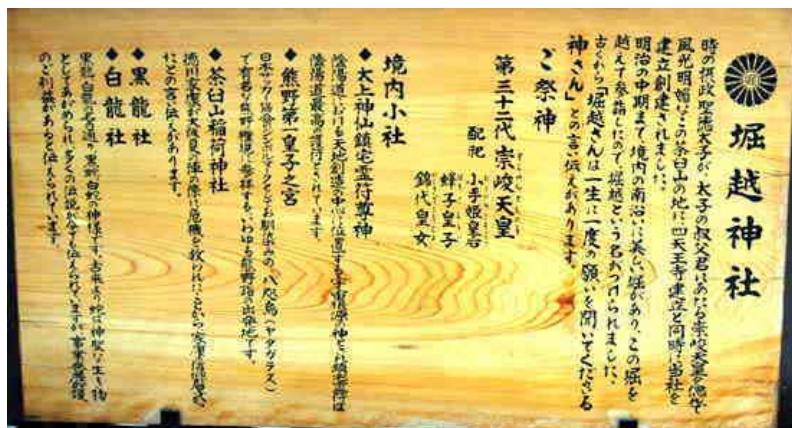 堀越神社
時の摂政聖徳太子が、太子の叔父君にあたる崇峻天皇を偲び
風光明媚なこの茶臼山の地に四天王寺建立と同時に当社を
建立創建されました。
明治の中期まで境内の南沿いに美しい堀があり、この堀を
越えて参詣したので、堀越という名がつけられました。
古くから「堀越さんは一生に一度の願いを聞いてくださる
神さん」との言い伝えがあります。
ご祭神
第三十二代 崇峻天皇
配祀 小手姫皇后
蜂子皇子
錦代皇女
境内小社
◆太上神仙鎮宅霊符尊神
陰陽道における天地創造の中心に位置する
陰陽道最高の護符とされています。
◆熊野第一皇子之宮
日本サッカー協会のシンボルマークとしてお馴染みの八咫烏(ヤタガラス)
で有名な熊野権現に参拝する、いわゆる熊野詣の出発地です。
◆茶臼山稲荷神社
徳川家康が大阪夏の陣の際に危機を救われたことから
などの言い伝えがあります。
◆黒龍社
◆白龍社
としてあがめられ、多くの伝説が今でも伝えられていますが、
のご利益があると伝えられています。